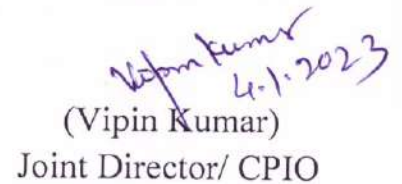 Vipin Kumar
4.1.2023
(Vipin Kumar)
Joint Director/ CPIO